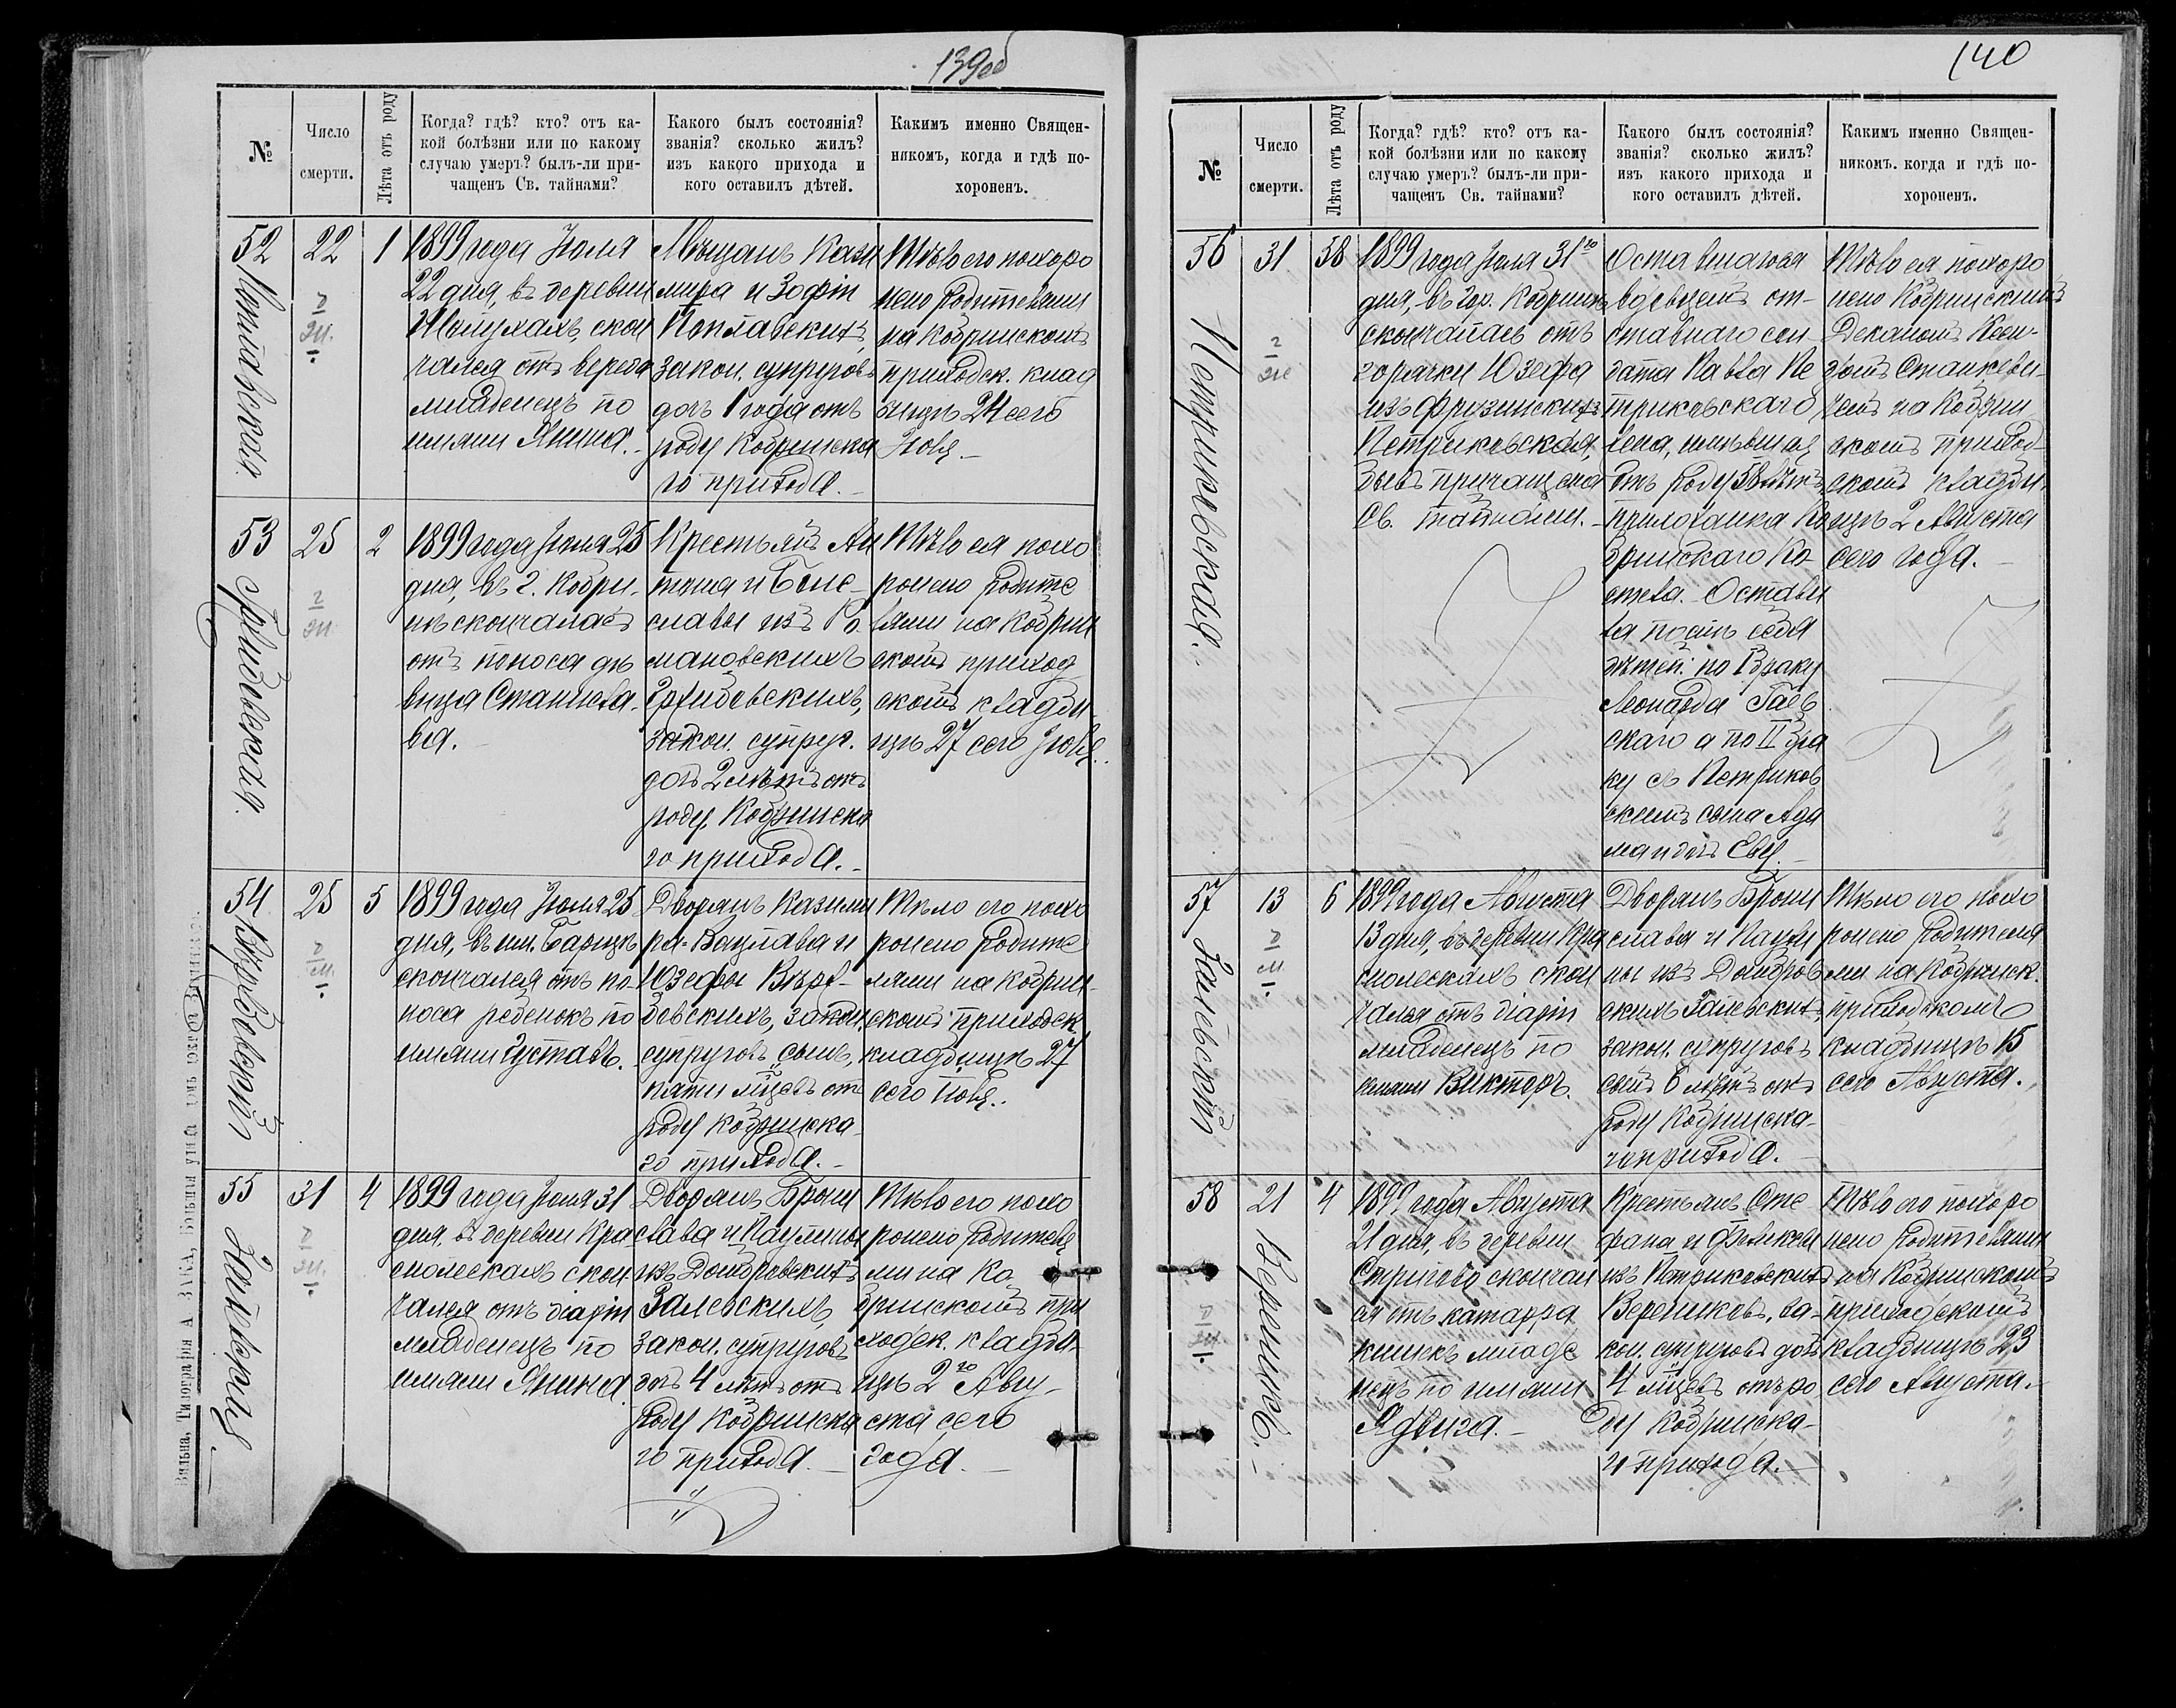 139об
№
Число смерти.
Лѣта отъ роду
Когда? гдѣ? кто? отъ ка-
кой болѣзни или по какому
случаю умеръ? былъ-ли при-
чащенъ Св. тайнами?
Какого былъ состоянія?
званія? сколько жилъ?
изъ какого прихода и
кого оставилъ дѣтей.
Какимъ именно Священ-
никомъ, когда и гдѣ по-
хороненъ.
52
22
1
1899 года Іюля
22 дня, въ деревни
скон
чался отъ
младенецъ по
имени Янина.
Мѣщанъ Кази
мира и Зофіи
Поплавскихъ,
закон. супруговъ
дочъ 1 года отъ
роду Кобринска
го прихода.
Тѣло его похоро
нено родителями
на Кобринскомъ
приходск. клад
бищѣ 24 сего
Іюля.
53
25
2
1899 года Іюля 25
дня, въ г. Кобри-
нѣ скончалась
отъ поноса дѣ
вица Станисла-
ва.
Крестьянъ Ан
тона и Боле-
славы изъ Ро
мановскихъ
закон. супруг.
дочъ 2 лѣтъ отъ
роду, Кобринска
го прихода.
Тѣло ея похо
ронено родите
лями на Кобрин
скомъ приход
скомъ кладби
щѣ 27 сего Іюля.
54
25
5
1899 года Іюля 25
дня, въ им.
скончался отъ по-
носа ребенокъ по
имени Густавъ.
Дворянъ Казими
ра-Вацлава и
Юзефы
закон
супруговъ сынъ,
пяти мѣ̃цевъ отъ
роду Кобринска-
го прихода.
Тѣло его похо
ронено родите
лями на Кобрин-
скомъ приходск.
кладбищѣ 27
сего Іюля.
55
31
4
1899 года Іюля 31
дня, въ деревни Кра-
скон
чался отъ діаріи
младенецъ по
имени Янина
Дворянъ Брони
слава и Паулины
изъ Домбровскихъ
Залѣвскихъ
закон. супруговъ
дочъ 4 лѣтъ отъ
роду Кобринска
го прихода.
Тѣло его похо
ронено родителя
ми на Ко-
бринскомъ при
ходск. кладби-
щѣ 2го Авгу-
ста сего
года.
Вильна, Типографія А. ЗАКА,
140
№
Число смерти.
Лѣта отъ роду
Когда? гдѣ? кто? отъ ка-
кой болѣзни или по какому
случаю умеръ? былъ-ли при-
чащенъ Св. тайнами?
Какого былъ состоянія?
званія? сколько жилъ?
изъ какого прихода и
кого оставилъ дѣтей.
Какимъ именно Священ-
никомъ. когда и гдѣ по-
хороненъ.
56
Петриковская.
31
58
1899 года Іюля 31го
дня, въ гор. Кобринѣ
скончалась отъ
горячки Юзефа
изъ Фрузинскихъ
Петриковская,
бывъ причащена
Св. тайнами.
Оставшаяся
вдовою от-
ставного сол-
дата Павла Пе
триковскаго
жена, имѣвшая
отъ роду 58 лѣтъ,
прихожанка Ко
бринскаго Ко-
стела. Остави
ла послѣ себя
дѣтей: по I браку
Леонарда Гаев
скаго а по II бра
ку съ Петриков
скимъ сына Ада
ма и дочь Еву.
Тѣло ея похоро
нено Кобринскимъ
Деканомъ Ксен-
дзомъ Станкеви-
чемъ на Кобрин
скомъ приход-
скомъ кладби-
щѣ 2 Августа
сего года.
57
Залѣвскій
13
6
1899 года Августа
13 дня, въ деревни Кра
скон
чался отъ діаріи
младенецъ по
имени Викторъ.
Дворянъ Брони
слава и Паули
ны изъ Домбров
скихъ Залѣвскихъ,
закон. супруговъ
сынъ 6 лѣтъ отъ
роду Кобринска-
го прихода.
Тѣло его похо
ронено родителя
ми на Кобринск.
приходскомъ
кладбищѣ 15
сего Августа.
58
Вереникъ.
21
4
1899 года Августа
21 дня, въ деревни
Стригово скончал
ся отъ катарра
кишекъ младе
нецъ по имени
Ядвига.
Крестьянъ Сте
фана и
изъ Петриковскихъ
Верениковъ, за-
кон. супруговъ дочъ
4 мѣ̃цевъ отъ ро
ду Кобринска-
го прихода.
Тѣло его похоро
нено родителями
на Кобринскомъ
приходскомъ
кладбищѣ 23
сего Августа.